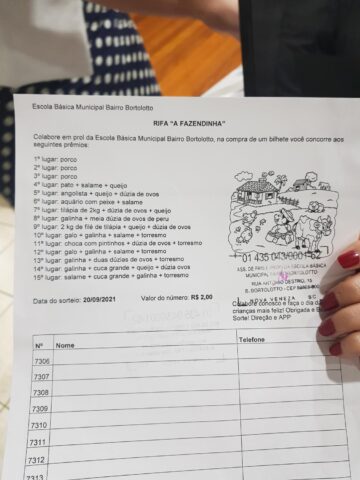 Escola Básica Municipal Bairro Bortolotto
RIFA "A FAZENDINHA"
Colabore em prol da Escola Básica Municipal Bairro Bortolotto, na compra de um bilhete você concorre aos
seguintes prêmios:
1º lugar: porco
2º lugar: porco
3º lugar: porco
4º lugar: pato + salame + queijo
5º lugar: angolista + queijo + dúzia de ovos
6º lugar: aquário com peixe + salame
7º lugar: tilápia de 2kg + dúzia de ovos + queijo
8º lugar: galinha + meia dúzia de ovos de peru
9º lugar: 2 kg de filé de tilápia + queijo + dúzia de ovos
10º lugar: galo + galinha + salame + torresmo
11º lugar: choca com pintinhos + dúzia de ovos + torresmo
12º lugar: galo + galinha + salame + torresmo
13º lugar: galinha + duas dúzias de ovos + torresmo
14º lugar: galinha + cuca grande + queijo + dúzia de ovos
15º lugar: salame + cuca grande + galinha + torresmo
01 435 043/0001-62
ASS. DE PAIS E PROFS DA ESCOLA BÁSICA
MUNICIPAL BORTOLOTTO
RUA DESTRO,
B. BORTOLOTTO - CEP
NOVA VENEZA SC
Data do sorteio: 20/09/2021 Valor do número: R$ 2,00
Colabore conosco e faça o dia d
crianças mais feliz! Obrigada e B
Sorte! Direção e APP
Nº Nome Telefone
7306
7307
7308
7309
7310
7311
7312
7313